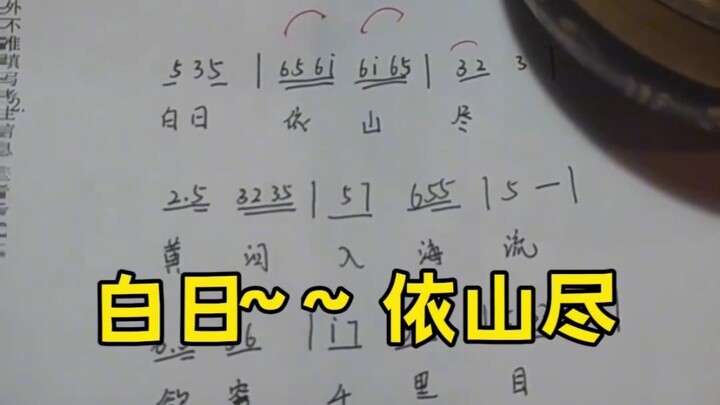 外不准填写考生信息
2.
5 3 5 | 656i 6i65 | 32 3 |
白日 依 山 尽
2.5 3235 | 57 655 | 5 — |
黄 河 入 海 流
白日~~依山尽
穷 千 里 目